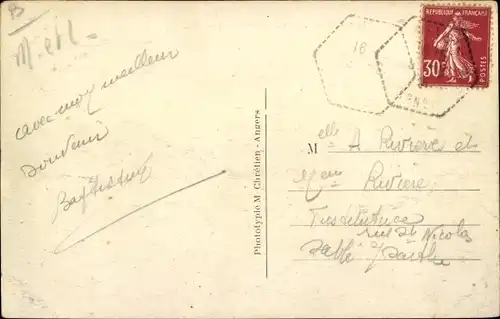 B
M et L -
avec mon meilleur
souvenir
Phototypie M. Chrétien - Angers
16
REPUBLIQUE FRANÇAISE
30c
POSTES
Melle A Rivière et
Mme Rivière
Institutrice
rue St Nicolas
Sablé s/Sarthe